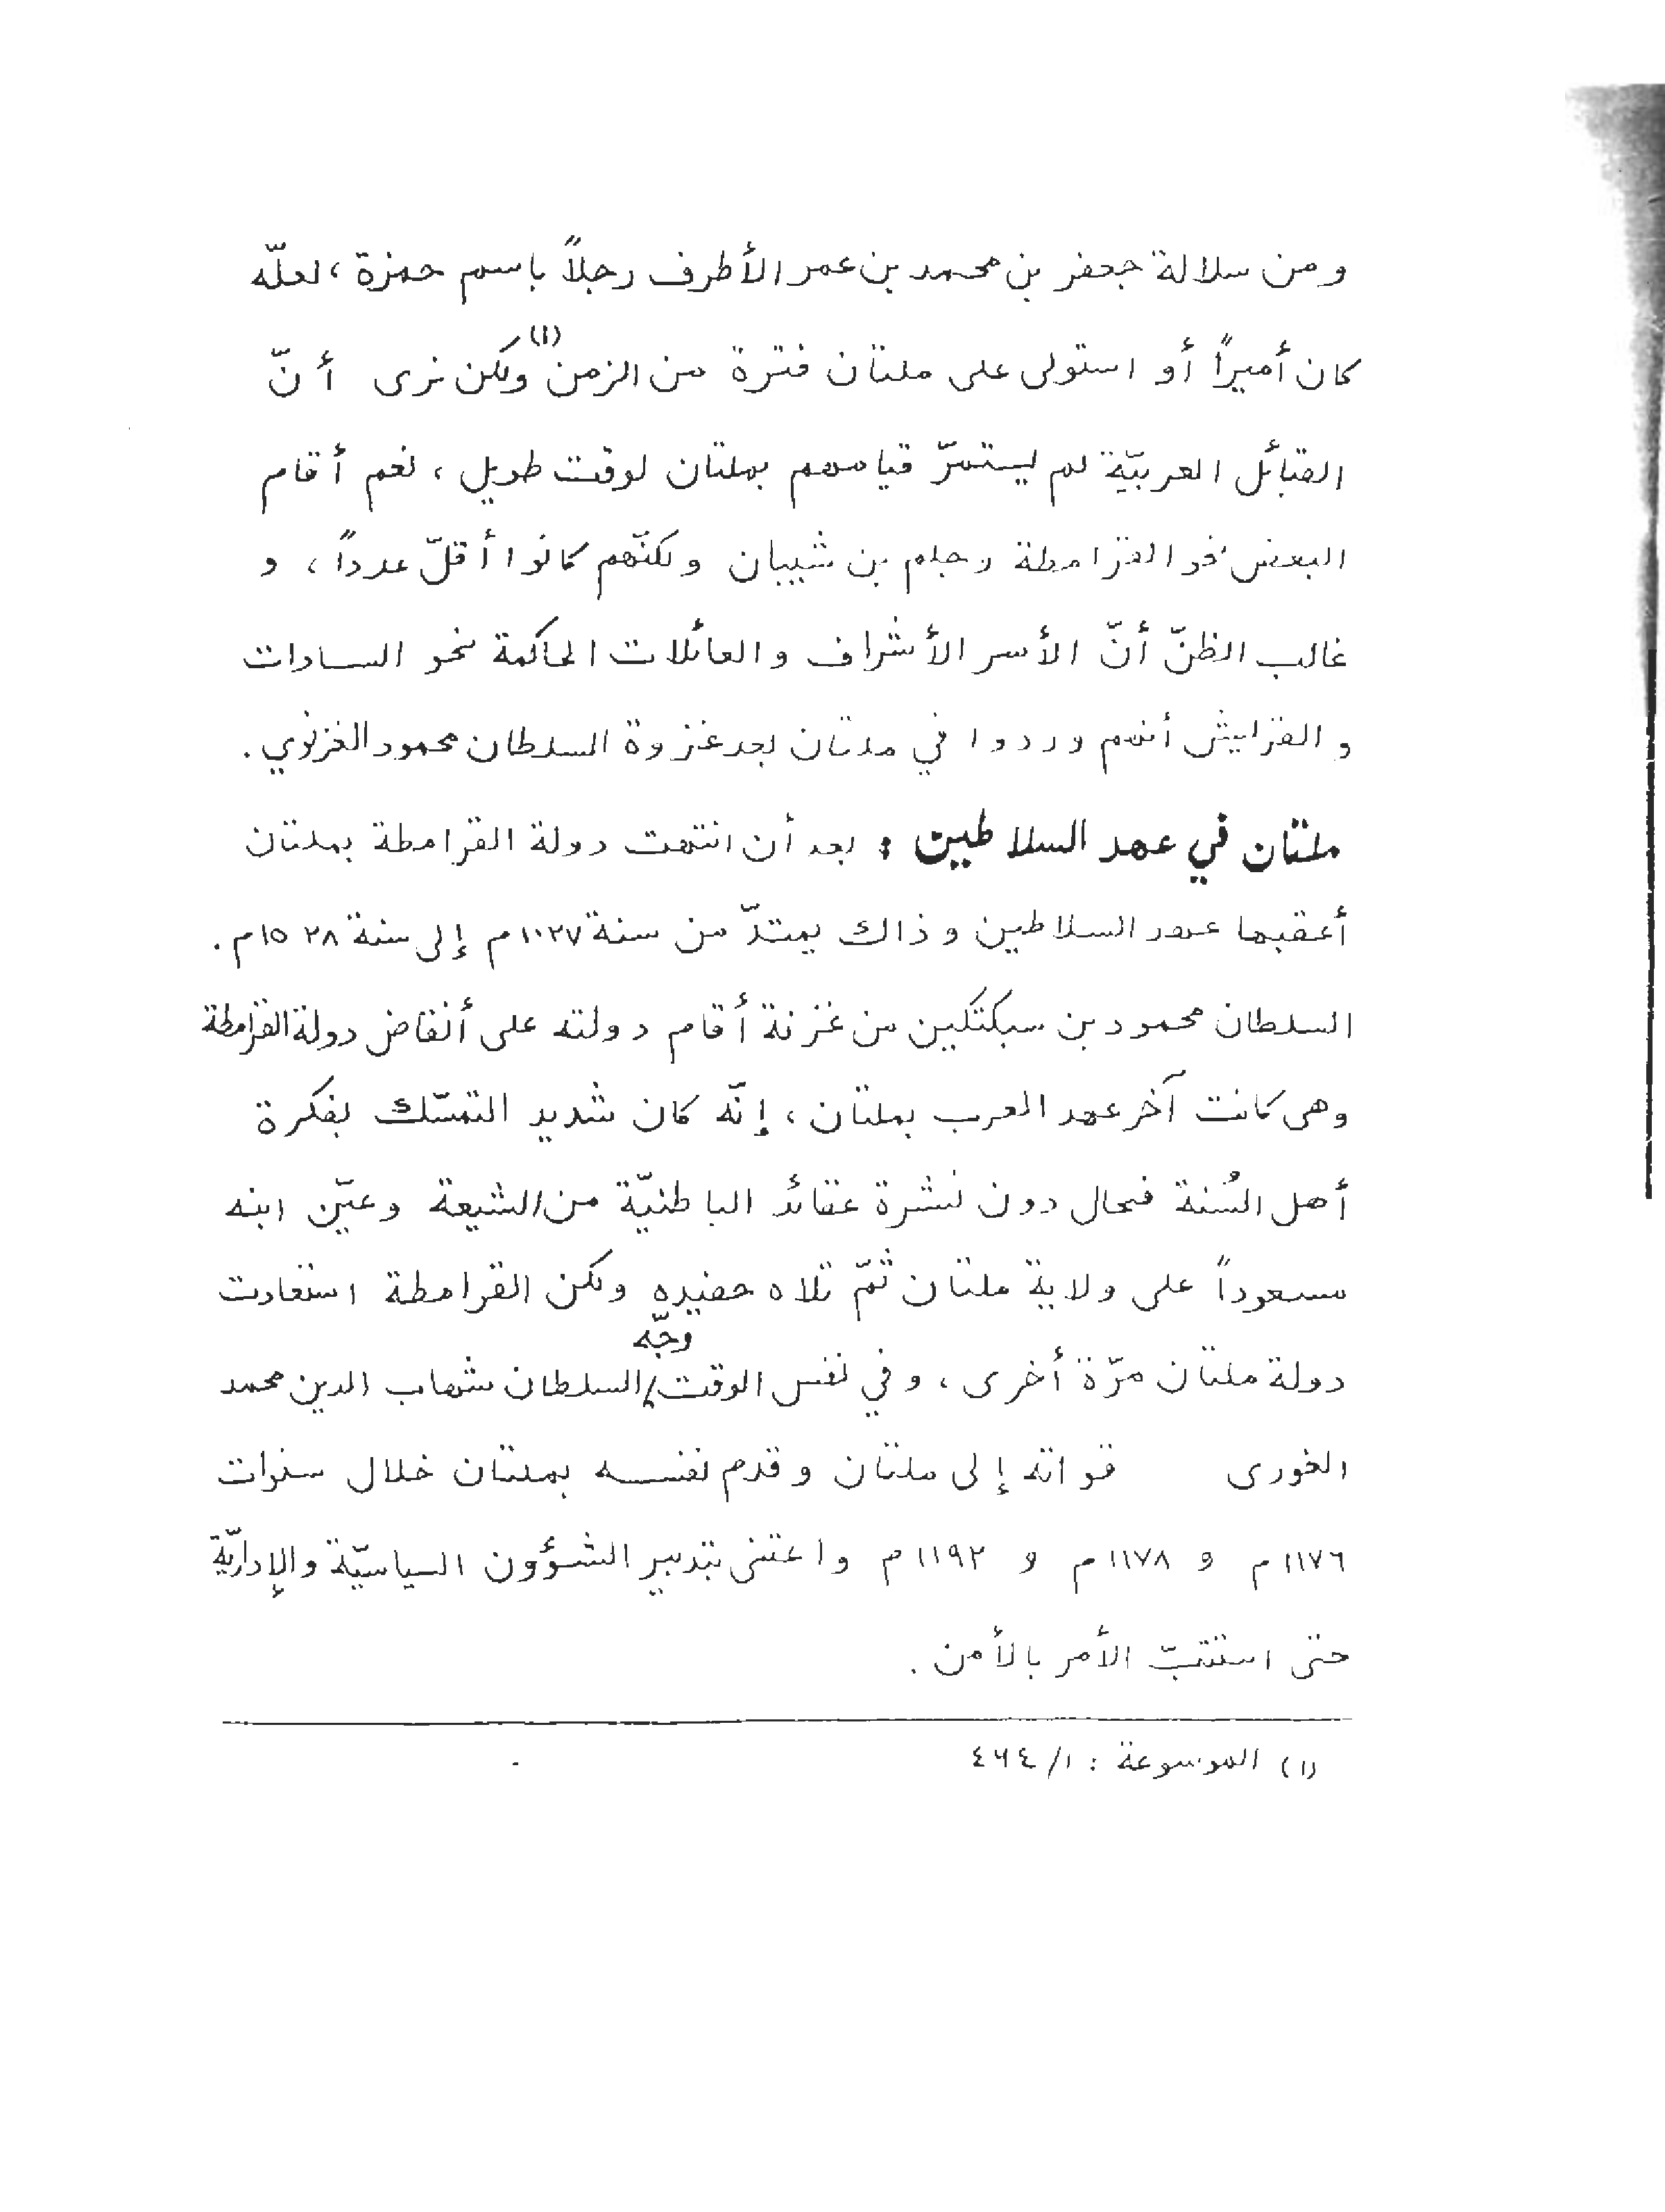 ومن سلالة جعفر بن محمد بن عمر الأطرف رجلاً باسم حمزة، لعلّه
كان أميراً أو استولى على ملتان فترة من الزمن(١) ولكن نرى أنّ
القبائل العربيّة لم يستمرّ قيامهم بملتان لوقت طويل، نعم أقام
البعض نحو القرامطة وجلم بن شيبان ولكنّهم كانوا أقلّ عدداً، و
غالب الظنّ أنّ الأسر الأشراف والعائلات الحاكمة نحو السادات
والقرايش أنهم وردوا في ملتان بعد غزوة السلطان محمود الغزنوي.
ملتان في عهد السلاطين : بعد أن انتهت دولة القرامطة بملتان
أعقبها عهد السلاطين وذاك يمتدّ من سنة ١٠٢٧م إلى سنة ١٥٢٨م.
السلطان محمود بن سبكتكين من غزنة أقام دولته على أنقاض دولة القرامطة
وهى كانت آخر عهد العرب بملتان، إنّه كان شديد التمسّك بفكرة
أهل السُنة فحال دون نشرة عقائد الباطنيّة من الشيعة وعيّن ابنه
مسعوداً على ولاية ملتان ثمّ تلاه حفيده ولكن القرامطة استعادت
دولة ملتان مرّة أخرى، وفي نفس الوقت وجّه السلطان شهاب الدين محمد
الغورى قواته إلى ملتان وقدم نفسه بملتان خلال سنوات
١١٧٦م و ١١٧٨م و ١١٩٢م واعتنى بتدبير الشؤون السياسيّة والإداريّة
حتى استتبّ الأمر بالأمن.
(١) الموسوعة : ١/٤٦٤